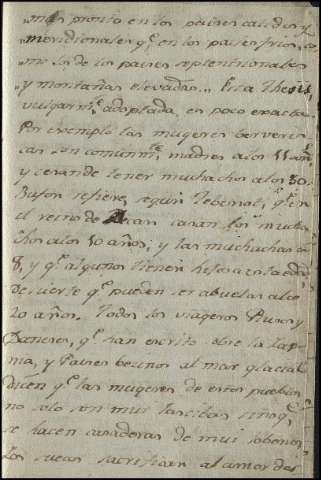 "mas pronto en los paises calidos y
"meridionales q.e en los paises frios, co
"mo los de los paises septentrionales
"y montañas elevadas". Esta thesis
vulgarm.te adoptada, es poco exacta.
Por exemplo las mugeres berveris
cas son comunm.te madres a los 11 añ.s
y cesan de tener muchachos a los 30.
Bufon refiere, segun q.e en
el reino de casan los mucha
chos a los 10 años, y las muchachas a
8, y q.e algunos tienen hijos en esta edad
de suerte q.e pueden ser abuelas a los
20 años. Todos los viageros Rusos y
Daneses, q.e han escrito sobre la Lapo
nia, y Paises vecinos al mar glacial
dicen q.e las mugeres de estos pueblos
no solo son mui lascibas sino q.e
se hacen casaderas de mui jobenes
los suecos sacrifican al amor des